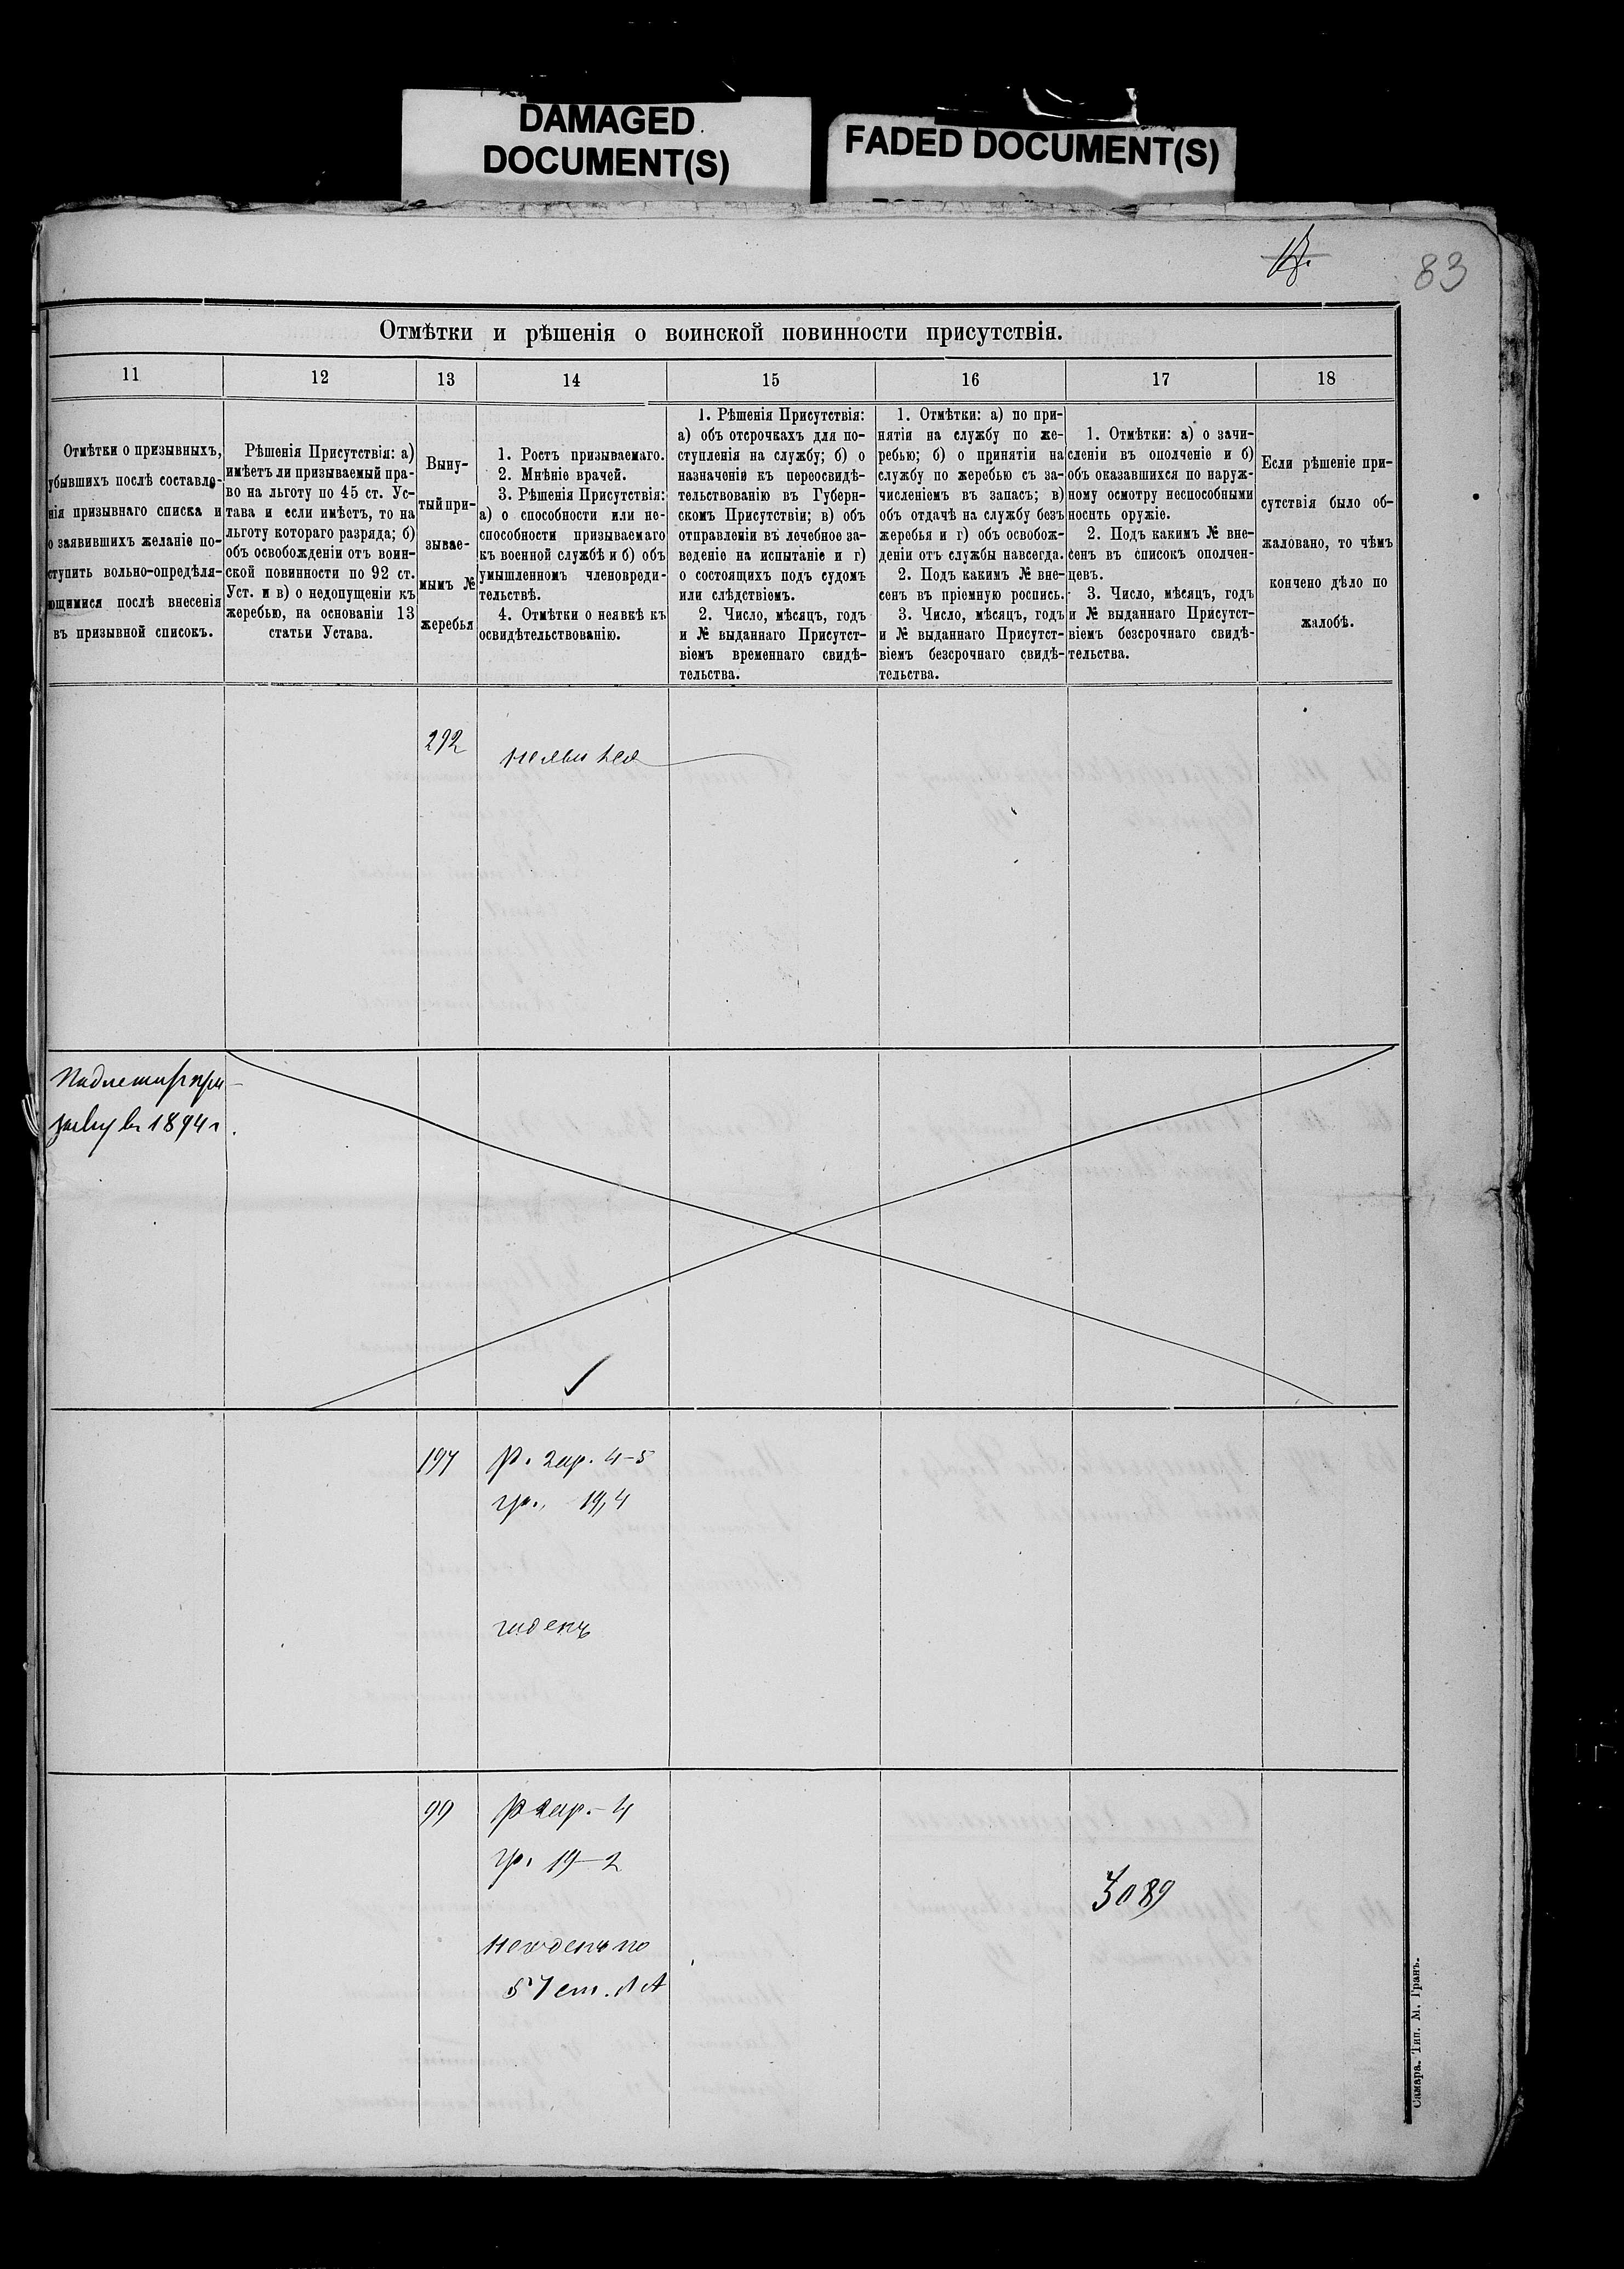 DAMAGED
DOCUMENT(S)
FADED DOCUMENT(S)
83
Отмѣтки и рѣшенія о воинской повинности присутствія.
11
12
13
14
15
16
17
18
Отмѣтки о призывныхъ,
убывшихъ послѣ составле-
нія призывнаго списка и
о заявившихъ желаніе по-
ступить вольно-опредѣля-
ющимися послѣ внесенія
въ призывной списокъ.
Рѣшенія Присутствія: а)
имѣетъ ли призываемый пра-
во на льготу по 45 ст. Ус-
тава и если имѣетъ, то на
льготу котораго разряда; б)
объ освобожденіи отъ воин-
ской повинности по 92 ст.
Уст. и в) о недопущеніи къ
жеребью, на основаніи 13
статьи Устава.
Выну-
тый при-
зывае-
мымъ №
жеребья
1. Ростъ призываемаго.
2. Мнѣніе врачей.
3. Рѣшенія Присутствія:
а) о способности или не-
способности призываемаго
къ военной службѣ и б) объ
умышленномъ членовреди-
тельствѣ.
4. Отмѣтки о неявкѣ къ
освидѣтельствованію.
1. Рѣшенія Присутствія:
а) объ отсрочкахъ для по-
ступленія на службу; б) о
назначеніи къ переосвидѣ-
тельствованію въ Губерн-
скомъ Присутствіи; в) объ
отправленіи въ лечебное за-
веденіе на испытаніе и г)
о состоящихъ подъ судомъ
или слѣдствіемъ.
2. Число, мѣсяцъ, годъ
и № выданнаго Присутст-
віемъ временнаго свидѣ-
тельства.
1. Отмѣтки: а) по при-
нятія на службу по же-
ребью; б) о принятіи на
службу по жеребью съ за-
численіемъ въ запасъ; в)
объ отдачѣ на службу безъ
жеребья и г) объ освобож-
деніи отъ службы навсегда.
2. Подъ какимъ № вне-
сенъ въ пріемную роспись.
3. Число, мѣсяцъ, годъ
и № выданнаго Присутст-
віемъ безсрочнаго свидѣ-
тельства.
1. Отмѣтки: а) о зачи-
сленіи въ ополченіе и б)
объ оказавшихся по наруж-
ному осмотру неспособными
носить оружіе.
2. Подъ какимъ № вне-
сенъ въ списокъ ополчен-
цевъ.
3. Число, мѣсяцъ, годъ
и № выданнаго Присутст-
віемъ безсрочнаго свидѣ-
тельства.
Если рѣшеніе при-
сутствія было об-
жаловано, то чѣмъ
кончено дѣло по
жалобѣ.
292
неявился
Подлежитъ при-
зыву въ 1894 г.
197
р. 2ар. 4-5
гр., 19,4
годенъ
99
р 2ар. - 4
гр. 19-2
негоденъ по
57 ст. л А
3089
Самара. Тип. М. Гранъ.